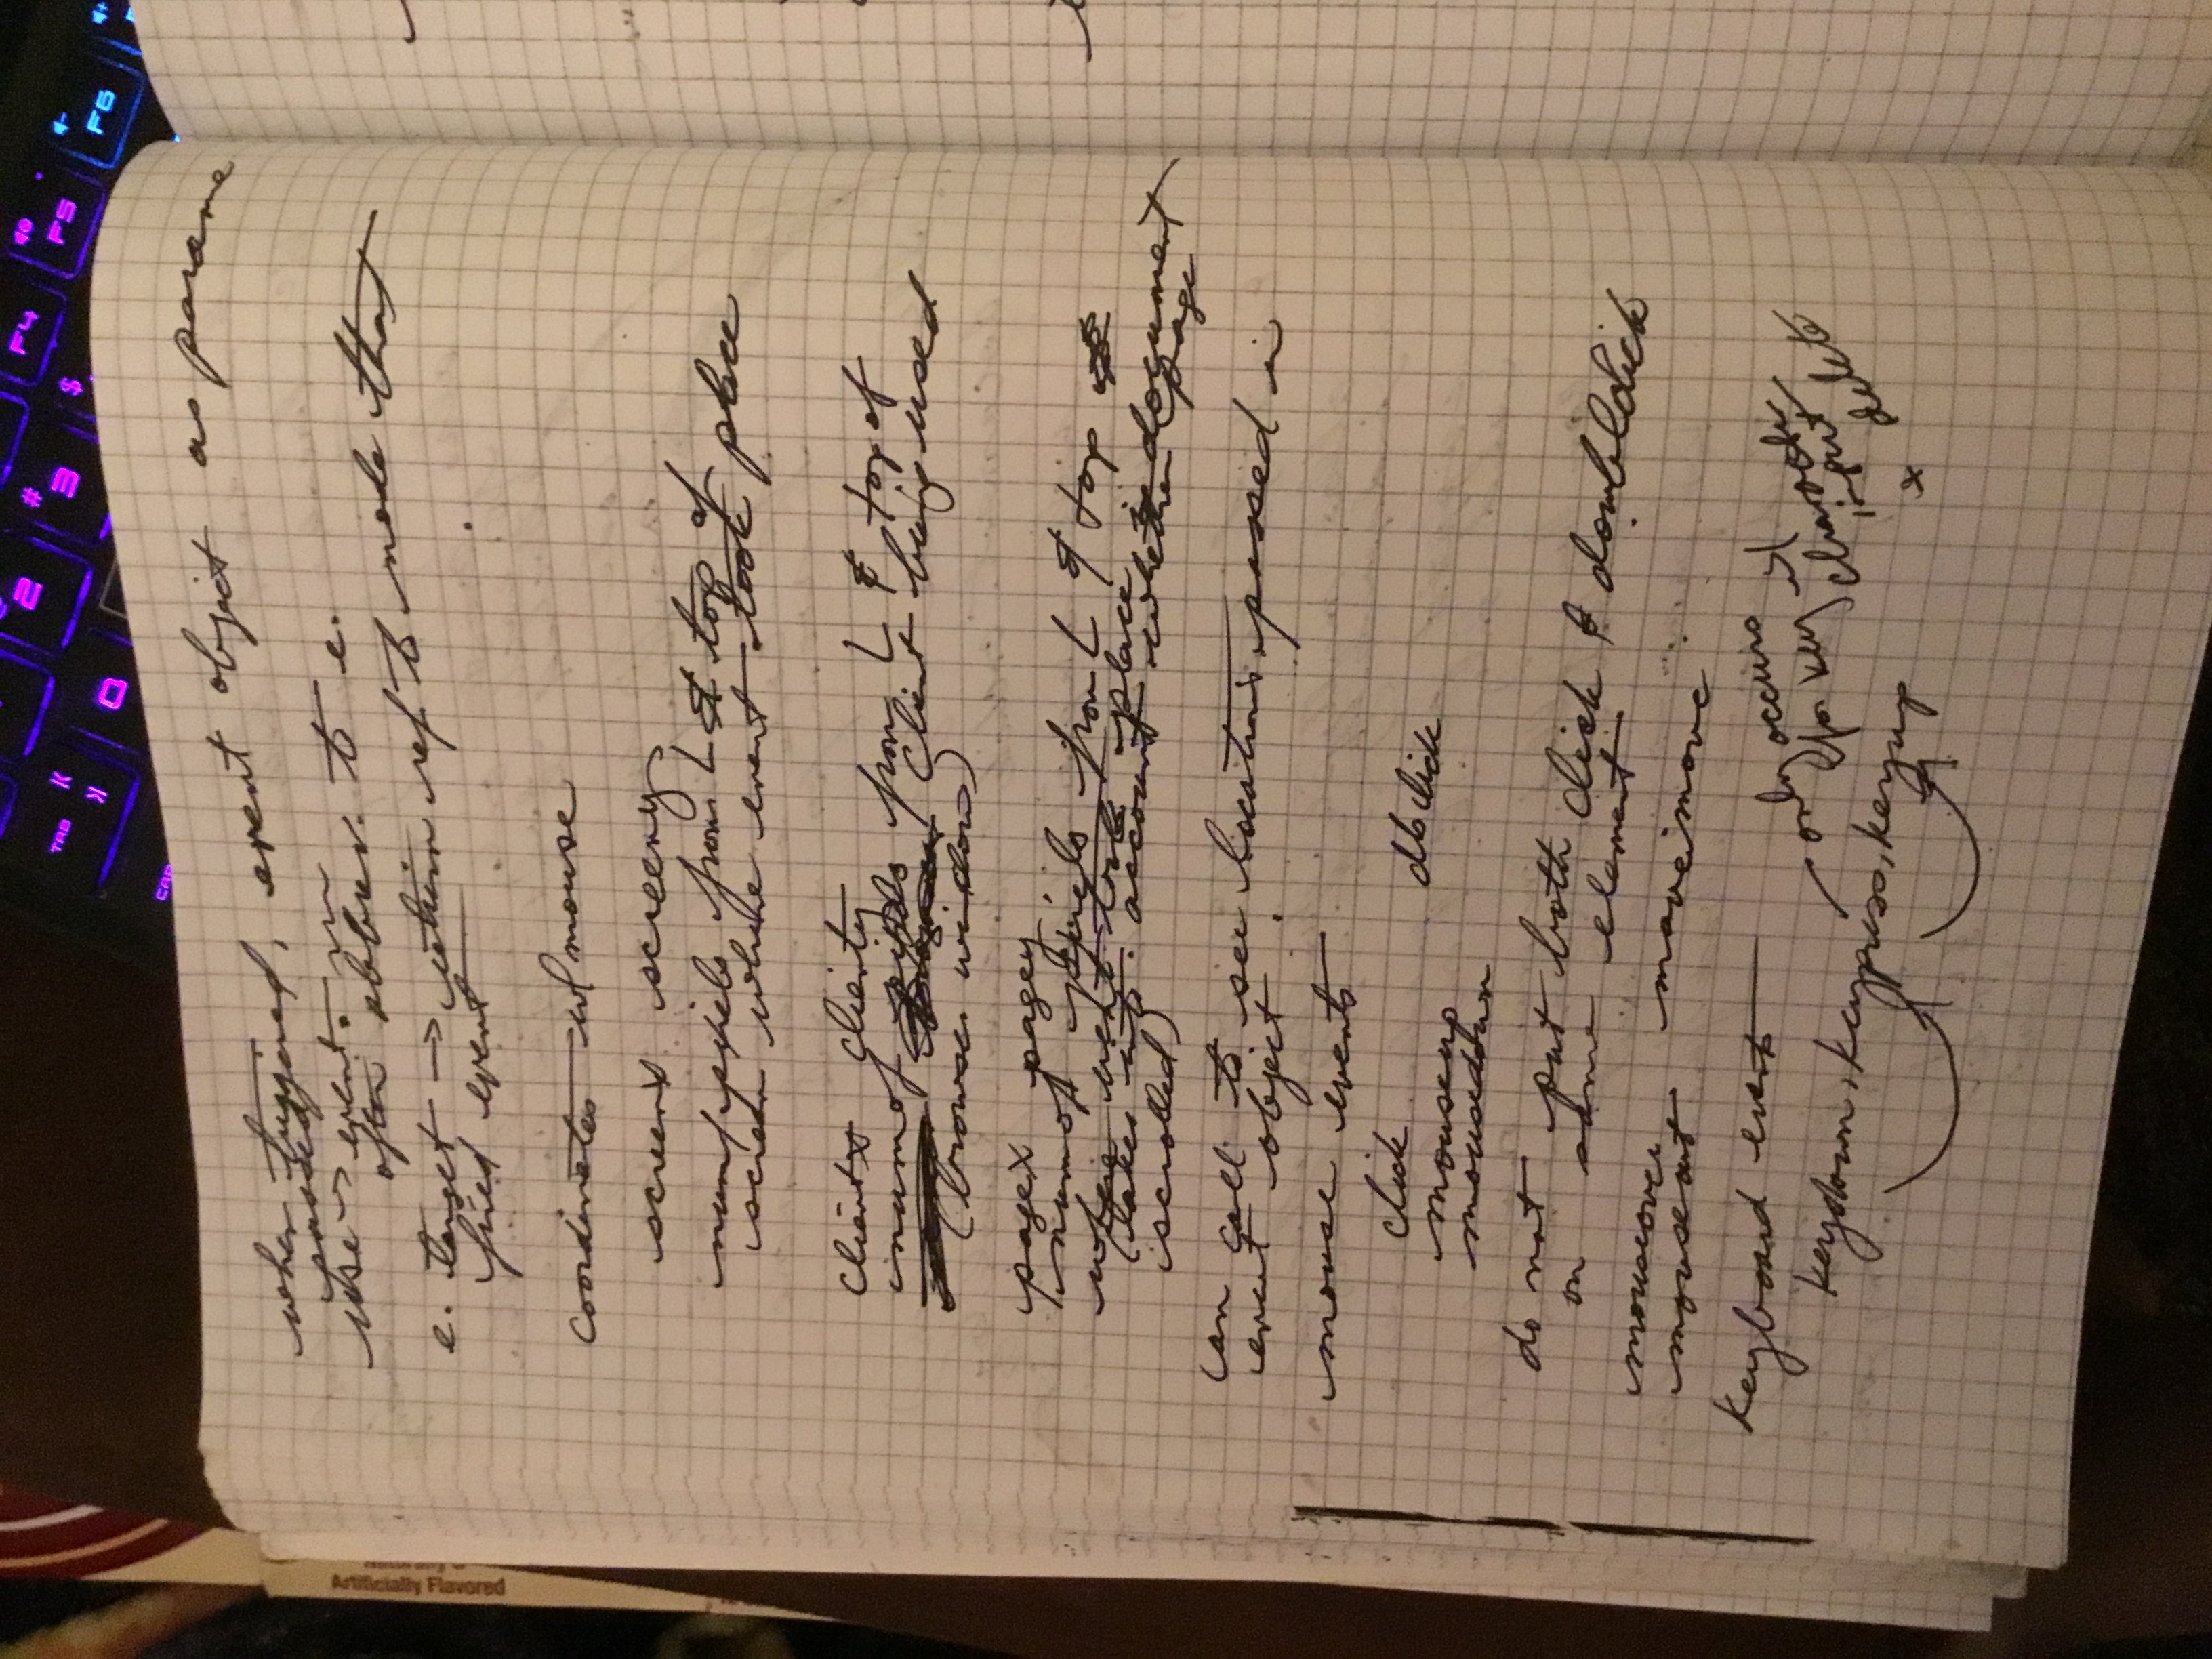 TAB
Q
2
#
3
$
F4
F5
F6
Artificially Flavored
when triggered, event object as parame
passed
use → event.
often abbrev. to e.
e. target → return ref to node that
fired event
coordinates w/ mouse
screenX screeny
num/pixels from L & top of
screen where event took place
clientx clienty
num of pixels from L & top of
client being used
(browser window)
pageX pagey
num of pixels from L & top
where event took place in document
(takes into account whether page
scrolled)
can call to see locations passed in
event object.
mouse events
click dblclick
mouseup
mousedown
do not put both click & doubleclick
on same element
mouseover
mouseout
Keyboard events
only occurs
for key w/
character
input
x delete
keydown, keypress, keyup